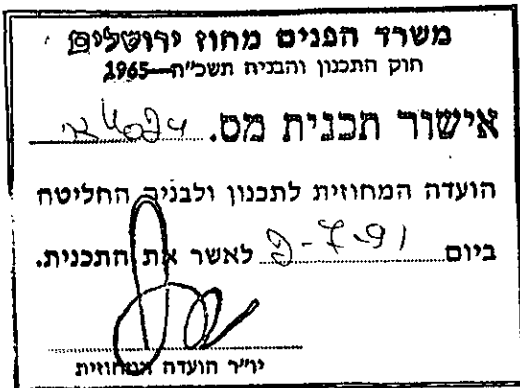 משרד הפנים מחוז ירושלים
חוק התכנון והבניה תשכ"ה—1965
אישור תכנית מס.
הועדה המחוזית לתכנון ולבניה החליטה
ביום 2-7-91 לאשר את התכנית.
יו"ר הועדה המחוזית